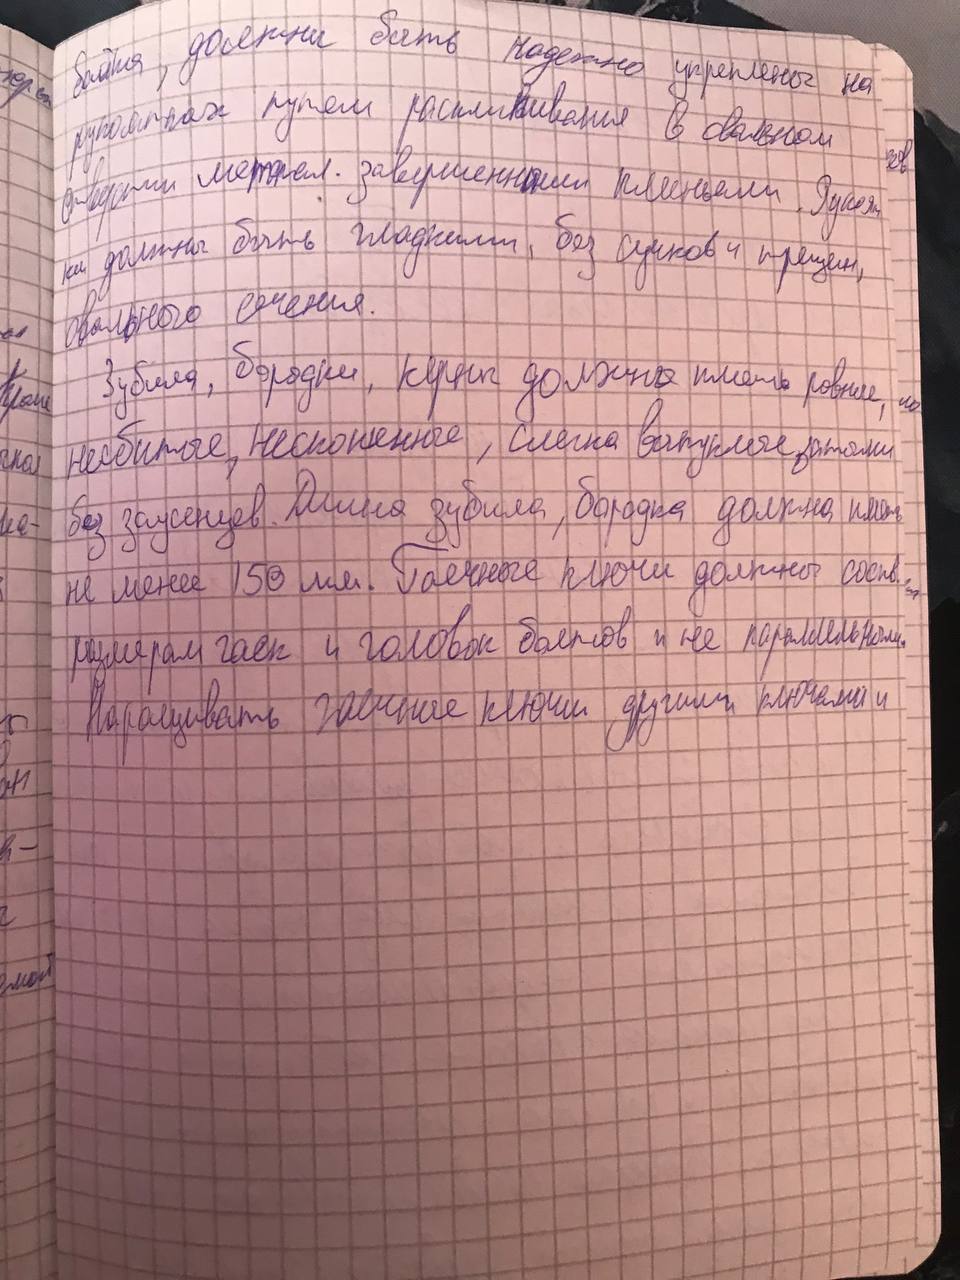 бойка, должны быть надежно укреплены на
рукоятках путем расклинивания в овальном
отверстии металл. завершенными клиньями. Рукоят
ки должны быть гладкими, без сучков и трещин,
овального сечения.
Зубила, бородки, керны должны иметь ровные,
несбитые, нескошенные, слегка выпуклые затылки
без заусенцев. Длина зубила, бородка должна иметь
не менее 150 мм. Гаечные ключи должны соотв.
размерам гаек и головок болтов и не параллельными.
Наращивать гаечные ключи другими ключами и